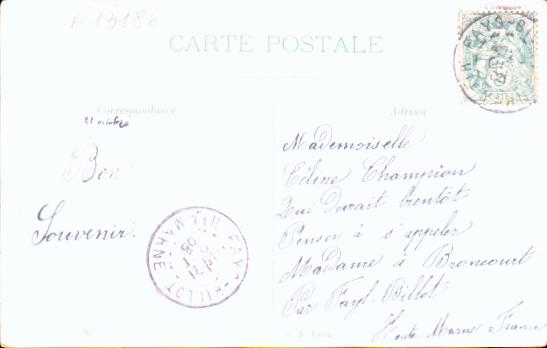 A 13186
CARTE POSTALE
Correspondance
Adresse
21 octobre
Bon
Souvenir.
Mademoiselle
Céline Champion
Qui Devrait bientôt
Penser à s'appeler
Madame à Broncourt
Par Fayl-Billot
Haute Marne France
FAYL-BILLOT
HTE MARNE
21
OCT
05